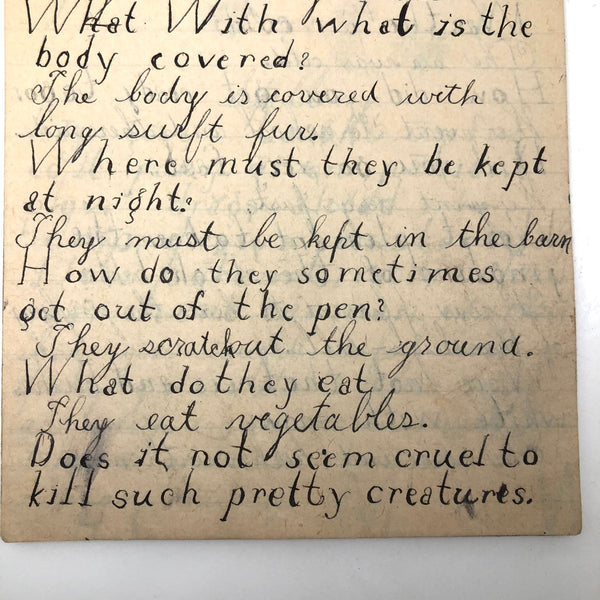 What With what is the
body covered?
The body is covered with
long swft fur.
Where must they be kept
at night?
They must be kept in the barn
How do they sometimes
get out of the pen?
They scratch out the ground.
What do they eat.
They eat vegetables.
Does it not seem cruel to
kill such pretty creatures.